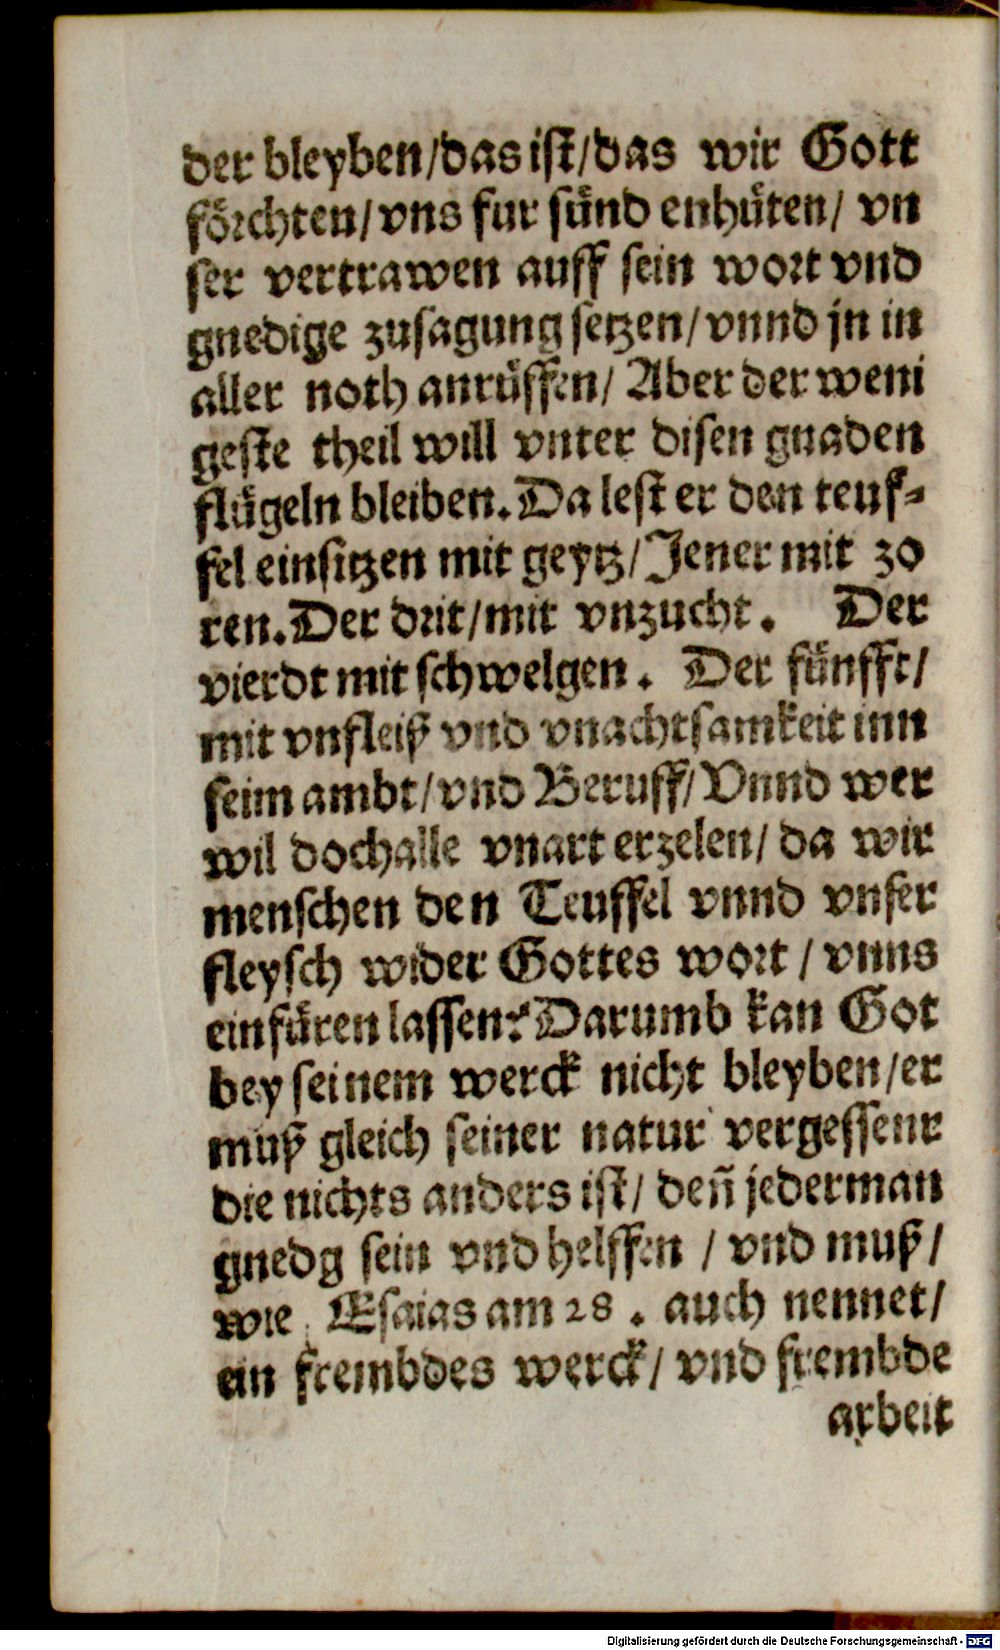 der bleyben/das ist/das wir Gott
foͤrchten/vns fur suͤnd enhuͤten/ vn
ser vertrawen auff sein wort vnd
gnedige zusagung setzen/vnnd jn in
aller noth anruͤffen/ Aber der weni
geste theil will vnter disen gnaden
fluͤgeln bleiben. Da lest er den teuf⸗
fel einsitzen mit geytz/Jener mit zo
ren. Der drit/mit vnzucht. Der
vierdt mit schwelgen. Der fuͤnfft/
mit vnfleiß vnd vnachtsamkeit inn
seim ambt/vnd Beruff/Vnnd wer
wil doch alle vnart erzelen/ da wir
menschen den Teuffel vnnd vnser
fleysch wider Gottes wort / vnns
einfuͤren lassen? Darumb kan Got
bey seinem werck nicht bleyben/er
muß gleich seiner natur vergessenr
die nichts anders ist/ deñ jederman
gnedg sein vnd helffen / vnd muß/
wie Esaias am 28. auch nennet/
ein frembdes werck/ vnd frembde
arbeit
Digitalisierung gefördert durch die Deutsche Forschungsgemeinschaft - DFG